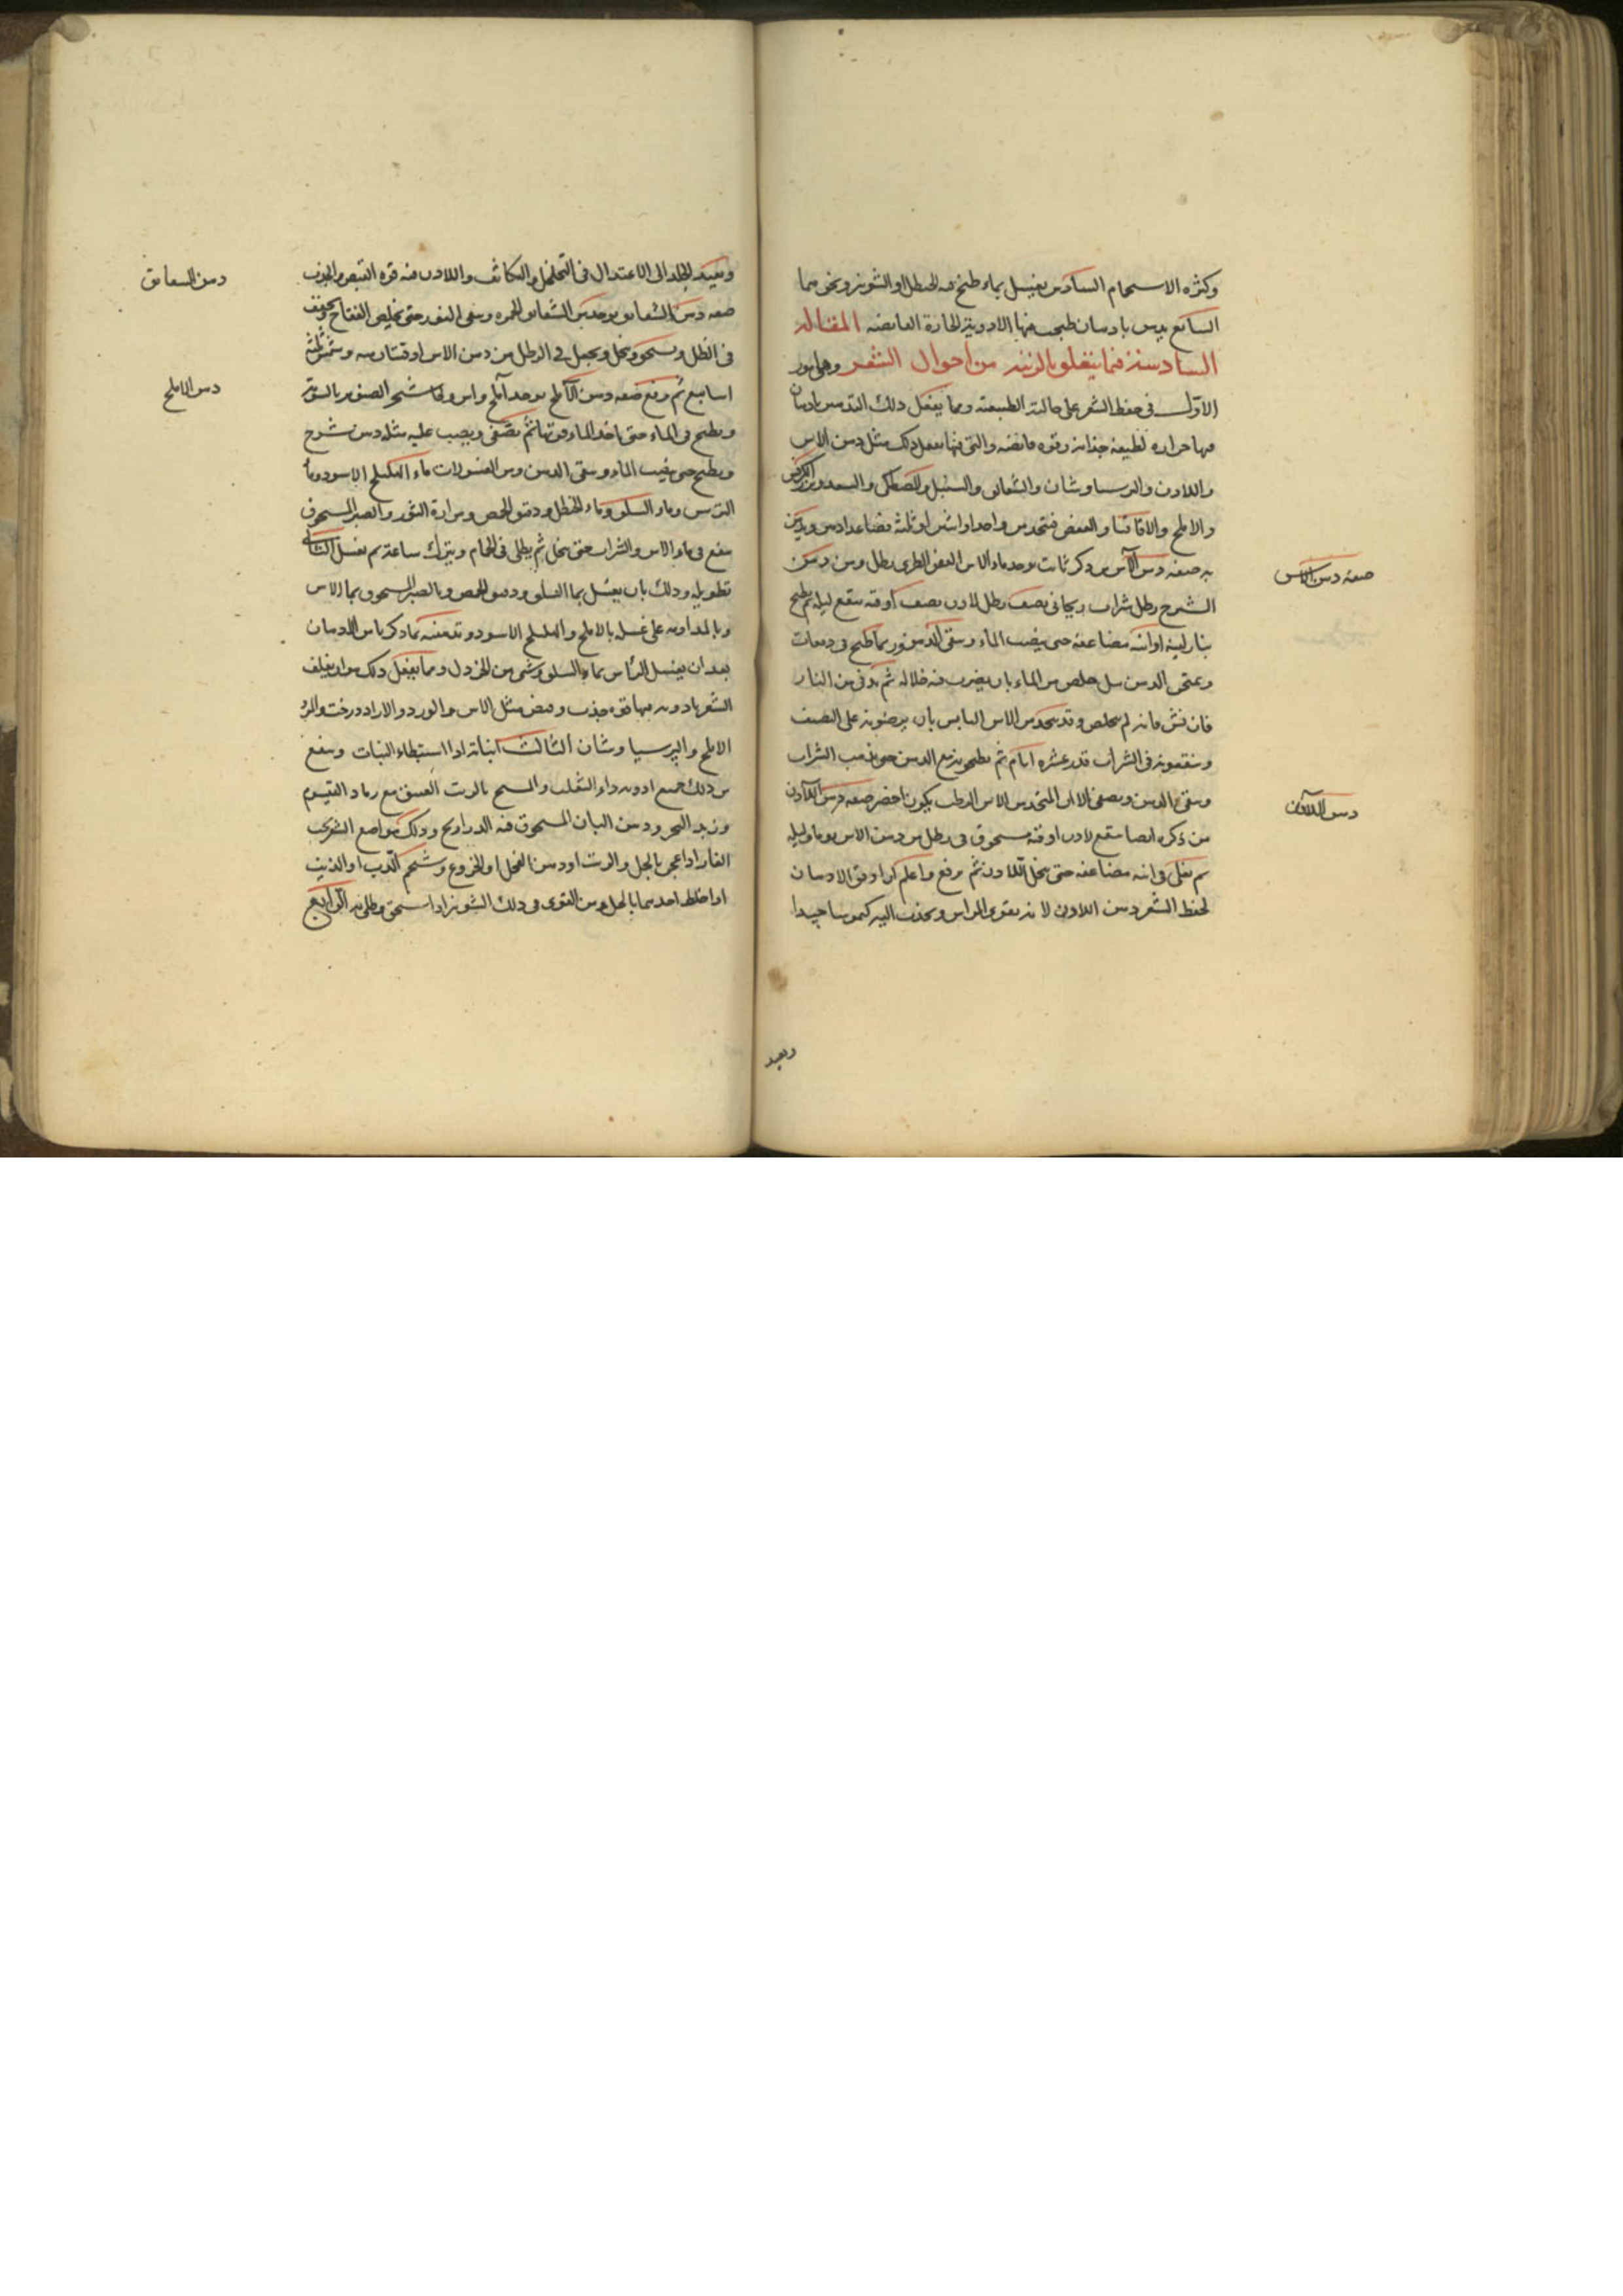 وكثرة الاستحمام السادس يغسل بماء طبخ فيه الحنظل او الشونيز ونحوهما
السابع يدهن بادهان طبخ فيها الادوية الحارة القابضة المقالة
السادسة فيما يتعلق بالزينة من احوال الشعر وهي امور
الاول في حفظ الشعر على حالته الطبيعية ومما يفعل ذلك التدهين بادهان
فيها حرارة لطيفة جذابة وقوة قابضة والتي فيها يفعل ذلك مثل دهن الاس
واللادن والبرسياوشان والشقايق والسنبل والمصطكى والسعد وبزر الكرفس
والاملج والاقاقيا والعفص فيتخذ من واحد او اثنين او ثلثة فصاعدا دهن ويدهن
به صفة دهن الآس يؤخذ ماء الاس الغض الطري رطل ومن دهن
الشيرج رطل شراب ريحاني نصف رطل لادن نصف اوقية ينقع ليلة ثم يطبخ
بنار لينة او انية مضاعفة حتى يغيب الماء ويبقى الدهن وربما طبخ في دفعات
ويمتحن الدهن هل خلص من الماء بان يضرب فيه خلاله ثم يدنى من النار
فان نش فانه لم يخلص وقد يتخذ من الاس اليابس بان يرضونه على النصف
وينقعونه في الشراب قدر عشرة ايام ثم يطبخونه مع الدهن حتى يذهب الشراب
ويبقى الدهن ويصفى الا ان المتخذ من الاس الرطب يكون اخضر صفة دهن اللادن
من ذكره ايضا ينقع لادن اوقية مسحوق في رطل من دهن الاس يوما وليلة
ثم يغلى في انية مضاعفة حتى ينحل اللادن ثم يرفع واعلم ان اوفق الادهان
لحفظ الشعر دهن اللادن لانه يقوى الراس ويجذب اليه كيموسا جيدا
وبعيد
صفة دهن الاس
دهن اللادن
ويعيد الجلد الى الاعتدال في التخلخل والتكاثف واللادن فيه قوة القبض والجذب
صفة دهن الشقايق يؤخذ من الشقايق الحمرة
في الظل ويسحق وينخل ويجعل في الرطل من دهن الاس اوقيتان منه ويشمس ثلثة
اسابيع ثم يرفع صفة دهن الآملج يؤخذ آملج واس وشجر الصنوبر بالسوية
ويطبخ في الماء حتى ياخذ الماء قوتها ثم يصفى ويصب عليه مثله دهن شيرج
ويطبخ حتى يغيب الماء ويبقى الدهن ومن الغسولات ماء الهليلج الاسود وماء
الترمس وماء السلق وماء الحنظل ودقيق الحمص ومرارة الثور والصبر المسحوق
ينقع في ماء الاس والشراب حتى ينحل ثم يطلى في الحمام ويترك ساعة ثم يغسل الثاني
تطويله وذلك بان يغسل بماء السلق ودقيق الحمص وبالصبر المسحوق بماء الاس
وبالمداومة على غسله بالاملج والهليلج الاسود وتدهينه بما ذكرنا من الادهان
بعد ان يغسل الراس بماء السلق وشي من الخردل ومما يفعل ذلك هو ان يغلف
الشعر بادوية فيها قوة جذب وقبض مثل الاس والورد والازاددرخت
الاملج والبرسياوشان الثالث انباته اذا استبطاء النبات وينفع
من ذلك جميع ادوية داء الثعلب والمسح بالزيت العتيق مع رماد القيسوم
وزبد البحر ودهن البان المسحوق فيه الدراريح ودلك مواضع الشعر
الفار اذا عجن بالخل والزيت او دهن الفجل او الخروع وشحم الدب
او اخلط احدهما بالخل ومن القوى في ذلك الشونيز اذا سحق وطلى به الرابع
دهن الشقايق
دهن الاملج